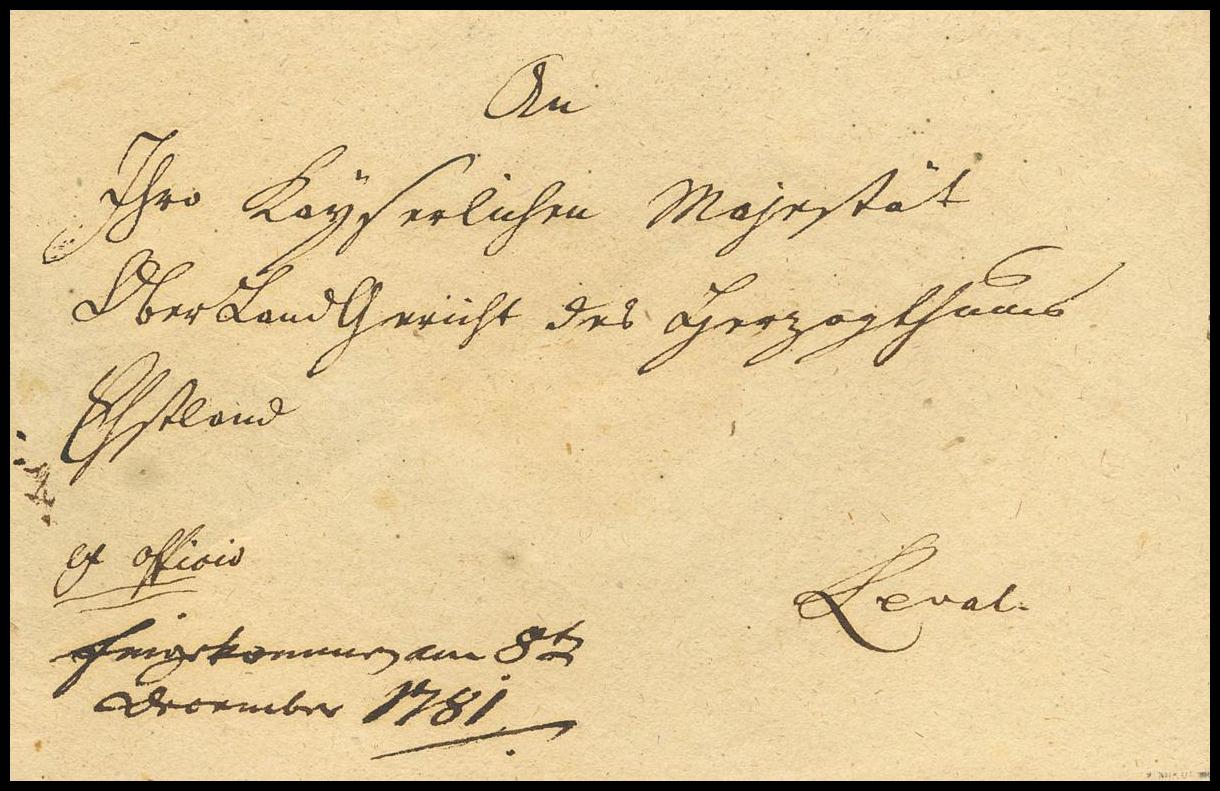 An
Ihro Kayserlichen Majestät
OberLandGericht des Herzogthums
Ehstland
ex officio
Reval.
Eingekommen am 8ten
December 1781